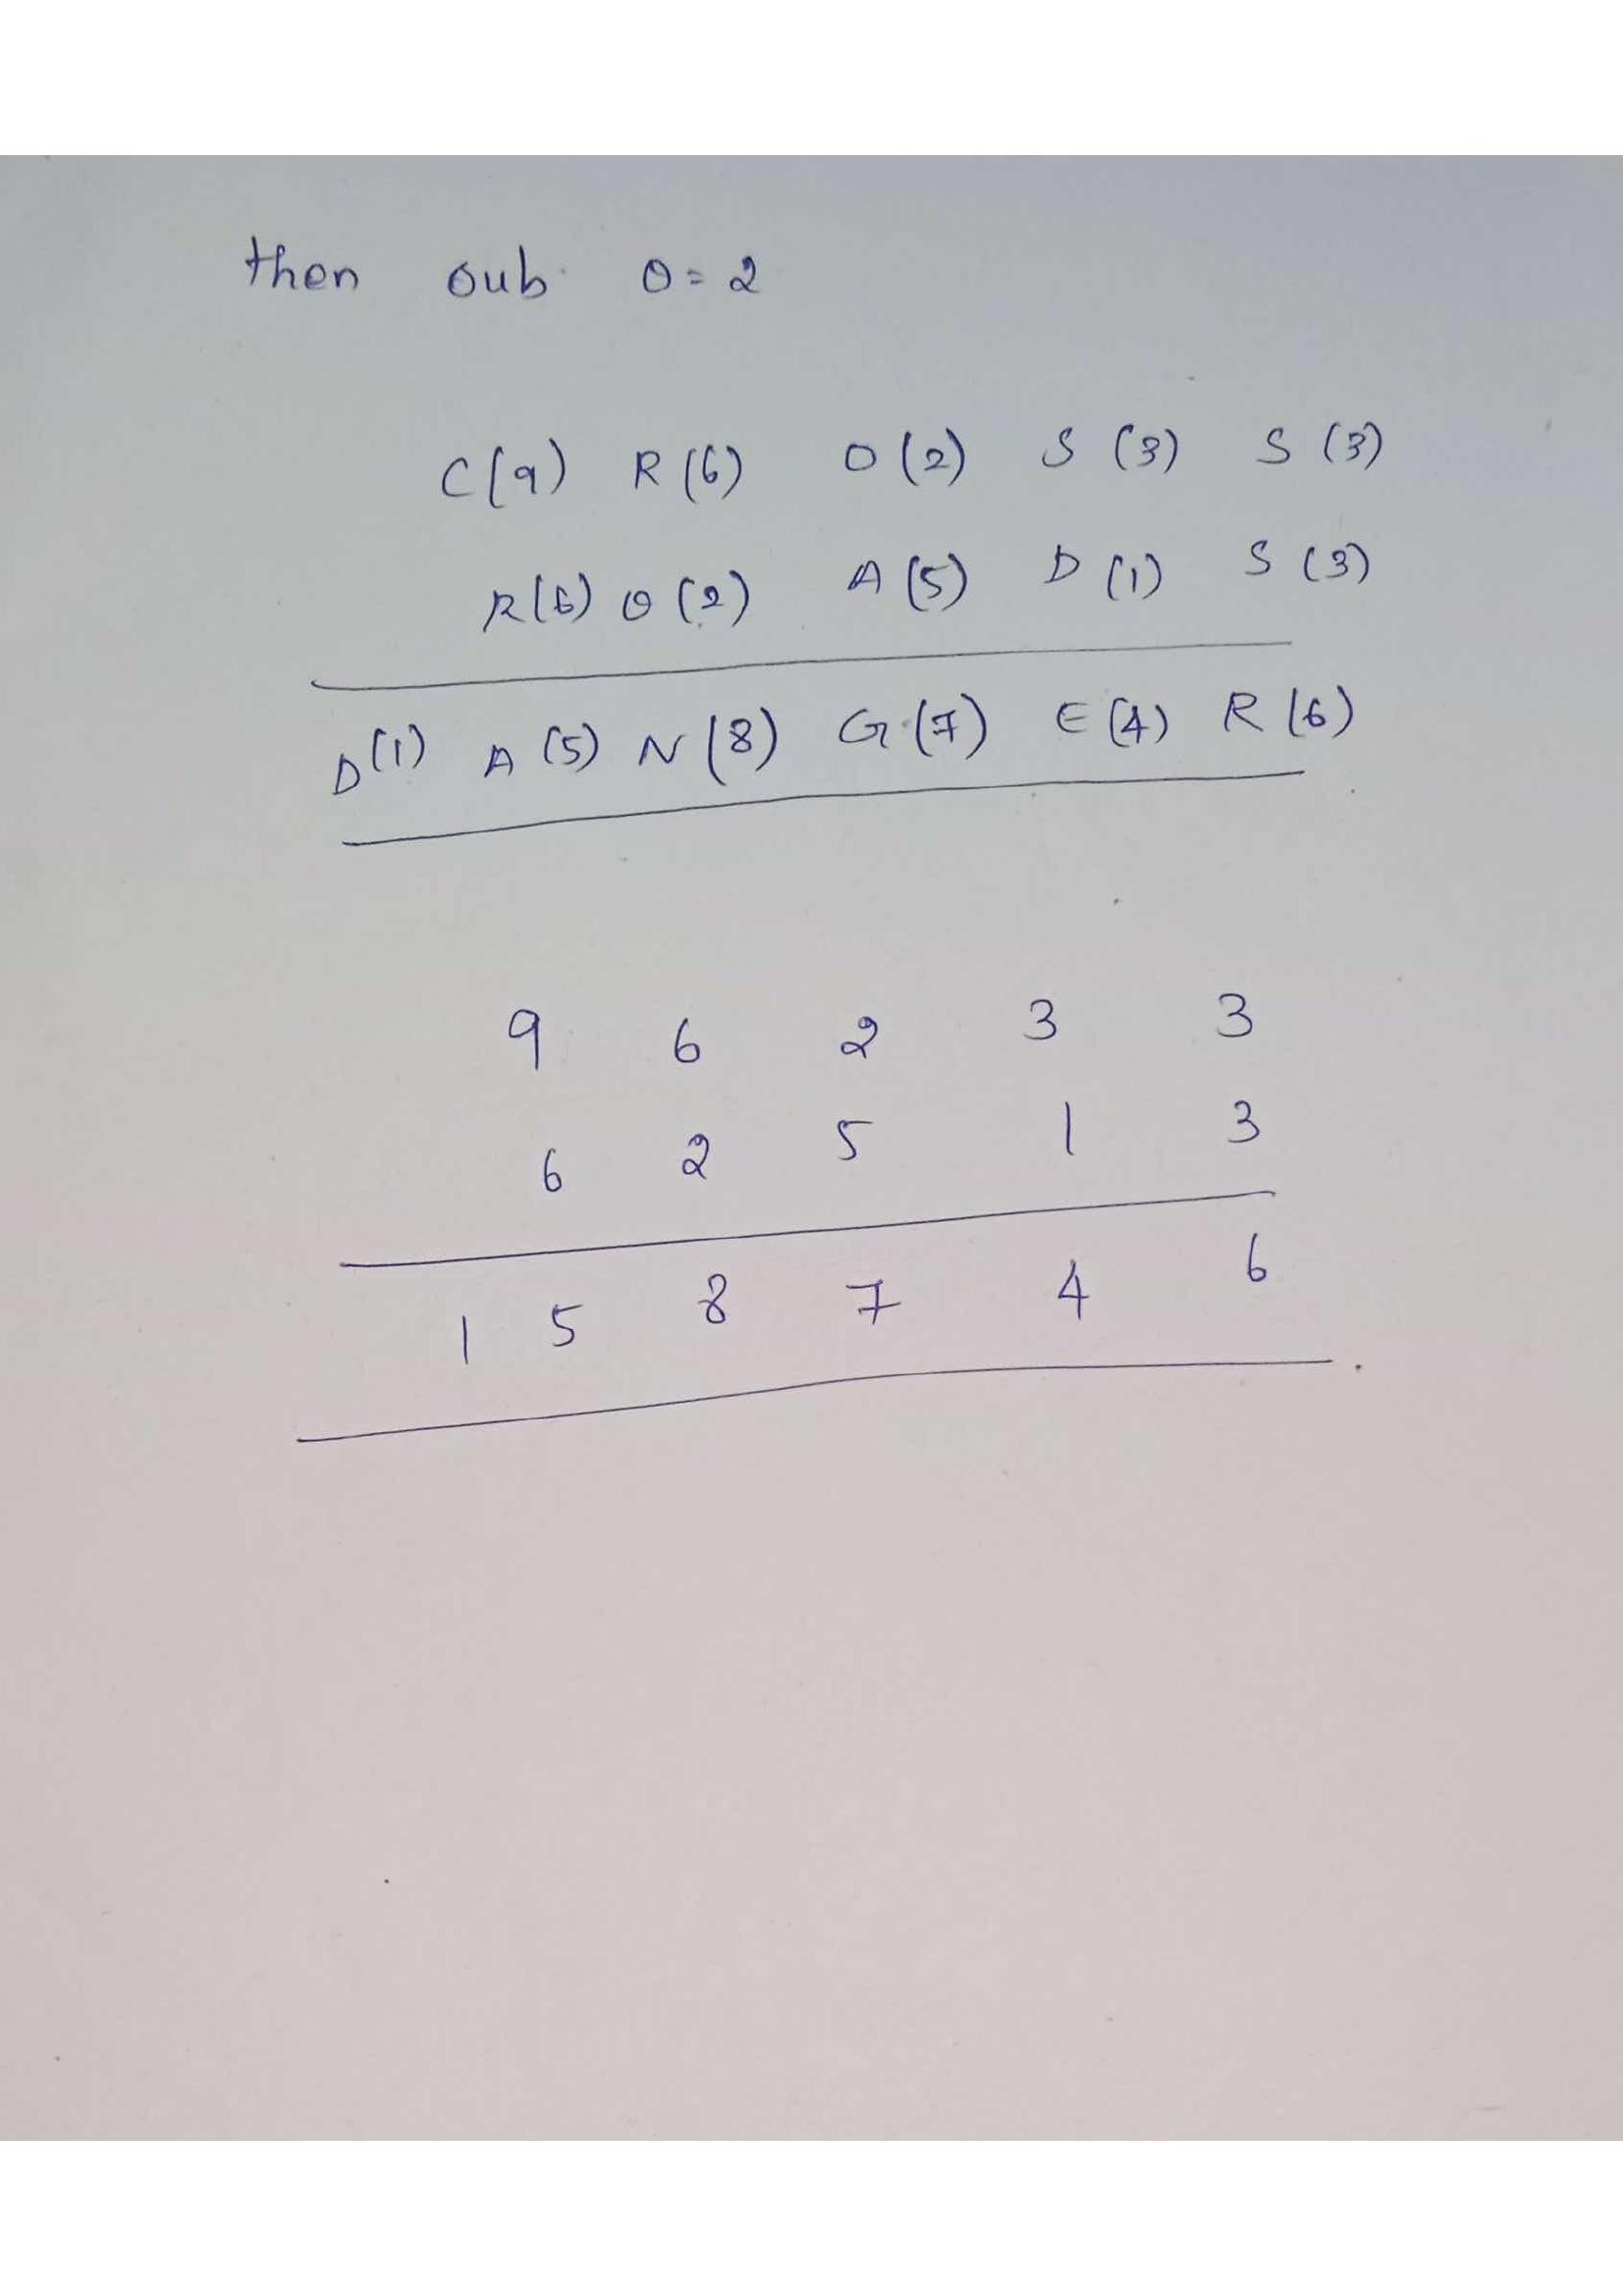 then sub. O = 2
C(9) R(6) O(2) S(3) S(3)
R(6) O(2) A(5) D(1) S(3)
D(1) A(5) N(8) G(7) E(4) R(6)
9 6 2 3 3
6 2 5 1 3
1 5 8 7 4 6